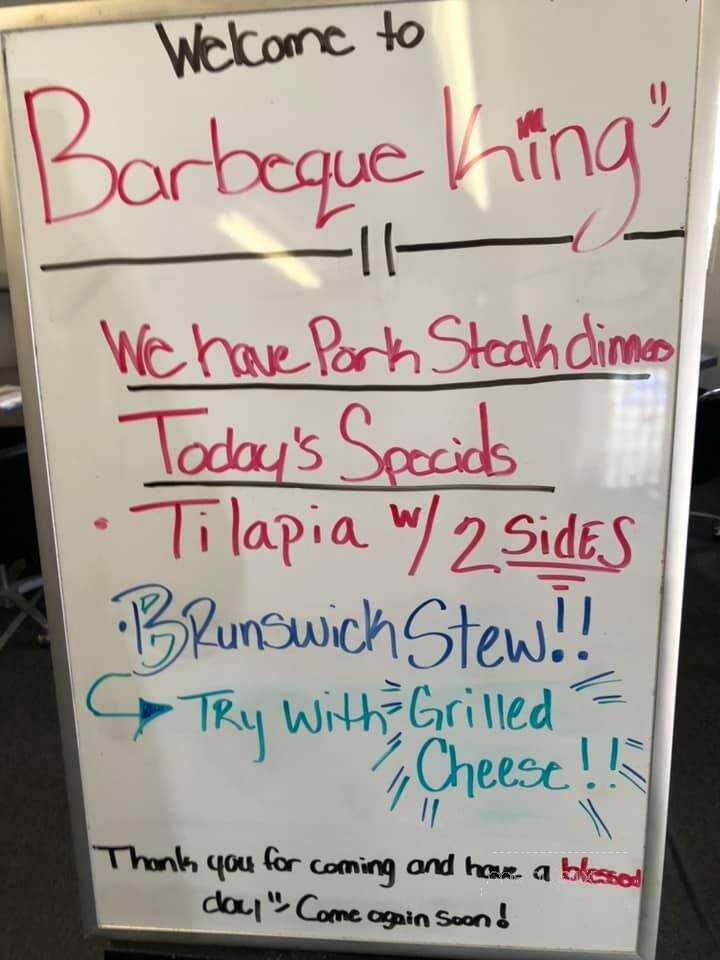 Welcome to
Barbeque King
We have Pork Steak dinners
Today's Specials
· Tilapia w/ 2 SidES
· BRunswick Stew!!
TRy With Grilled
Cheese!!
Thank you for coming and have a blessed
day Come again soon!